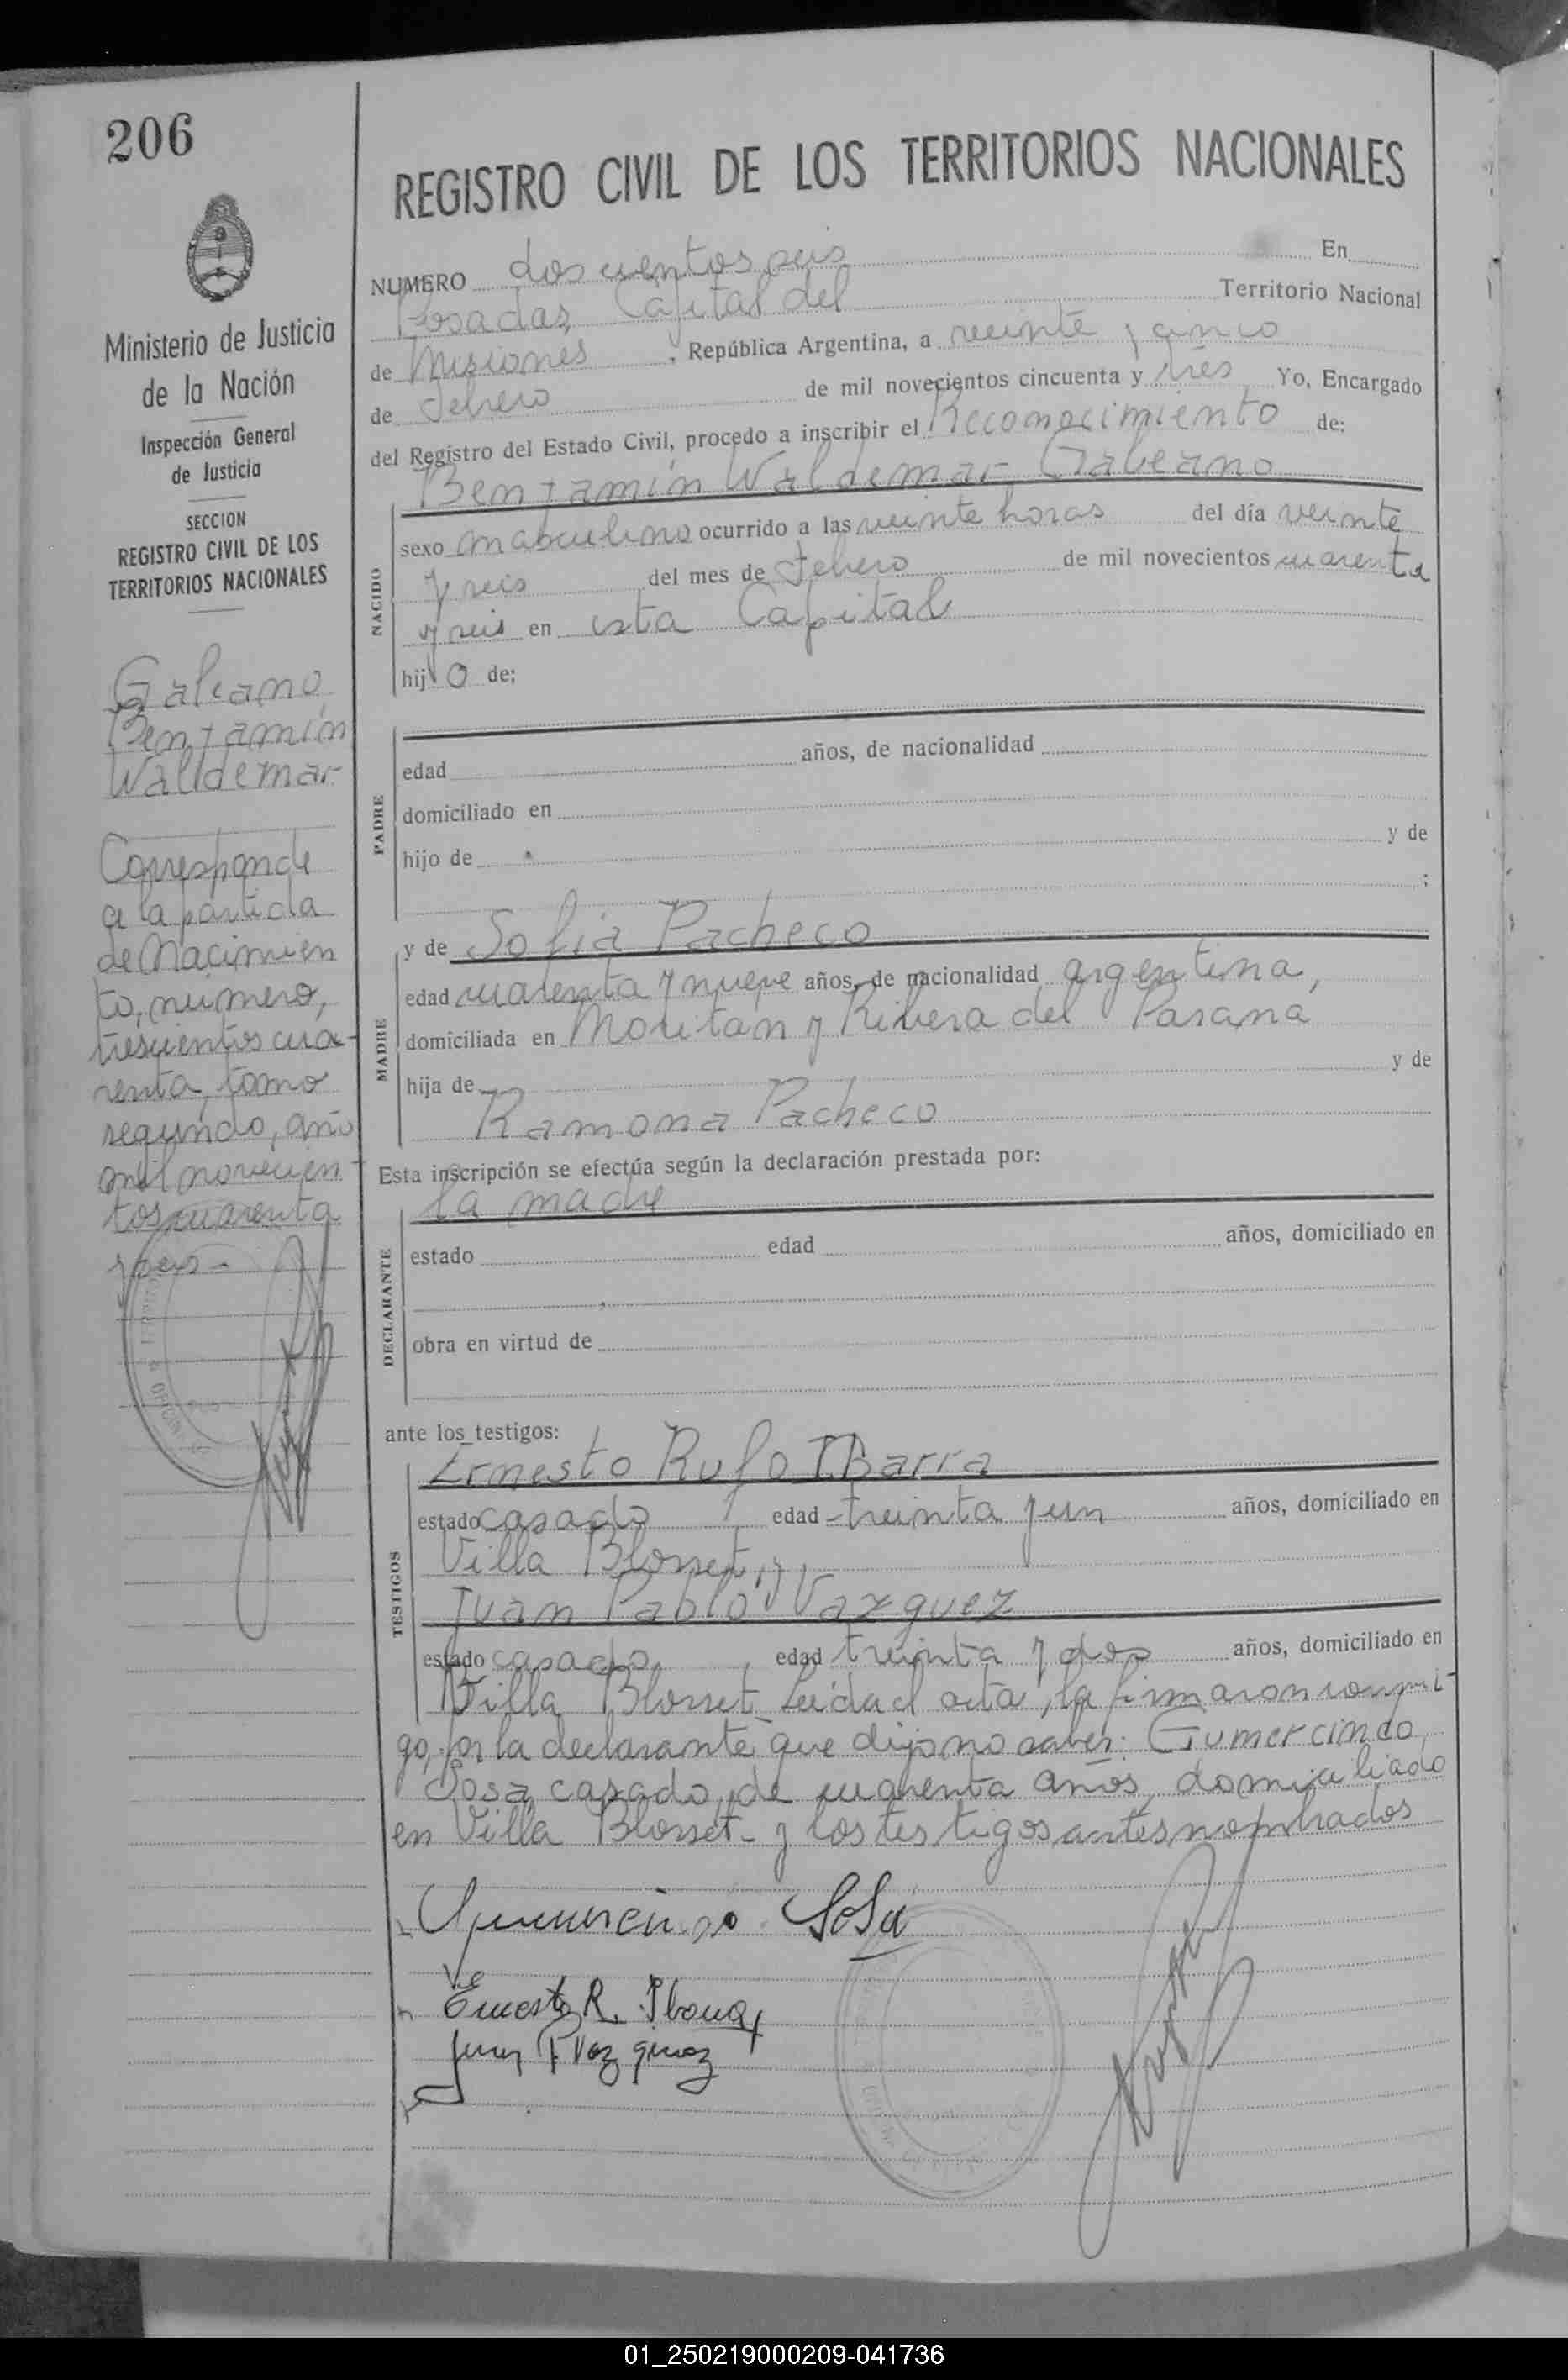 206
Ministerio de Justicia
de la Nación
Inspección General
de Justicia
SECCION
REGISTRO CIVIL DE LOS
TERRITORIOS NACIONALES
Galeano
Benjamín
Waldemar
Corresponde
a la partida
de Nacimien
to, número,
trescientos cua-
renta, tomo
segundo, año
mil novecien-
tos cuarenta
y seis-
REGISTRO CIVIL DE LOS TERRITORIOS NACIONALES
NUMERO doscientos seis En
Posadas, Capital del Territorio Nacional
de Misiones, República Argentina, a veinte y cinco
de Febrero de mil novecientos cincuenta y tres Yo, Encargado
del Registro del Estado Civil, procedo a inscribir el Reconocimiento de:
Benjamín Waldemar Galeano
NACIDO
sexo masculino ocurrido a las veinte horas del día veinte
y seis del mes de Febrero de mil novecientos cuarenta
y seis en esta Capital
hijo de;
PADRE
edad años, de nacionalidad
domiciliado en
hijo de y de
;
MADRE
y de Sofia Pacheco
edad cuarenta y nueve años, de nacionalidad argentina,
domiciliada en Moritan y Ribera del Paraná
hija de y de
Ramona Pacheco
Esta inscripción se efectúa según la declaración prestada por:
la madre
DECLARANTE
estado edad años, domiciliado en
obra en virtud de
ante los testigos:
TESTIGOS
Ernesto Rufo IBarra
estado casado edad treinta y un años, domiciliado en
Villa Blosset, y
Juan Pablo Vazquez
estado casado, edad treinta y dos años, domiciliado en
Villa Blosset_ Leída el acta, la firmaron conmi-
go, por la declarante que dijo no saber: Gumercindo
Sosa, casado, de cuarenta años, domiciliado
en Villa Blosset- y los testigos antes nombrados
Gumercindo Sosa
Ernesto R. Ibarra
Juan P. Vazquez
01_250219000209-041736